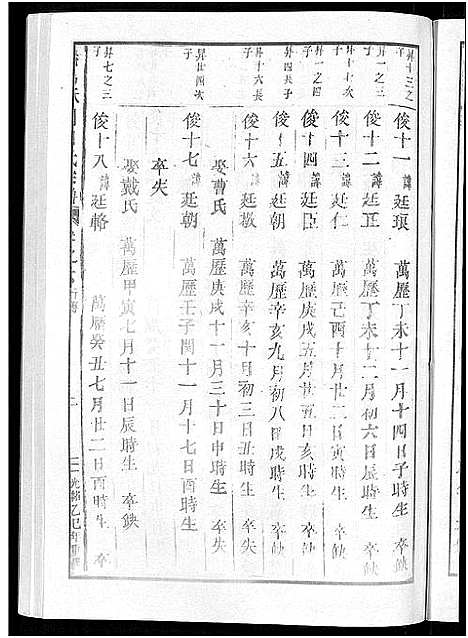 昇十三之子
俊十一 諱廷瑱 萬歷丁未十一月十四日子時生 卒缺
昇一之次子
俊十二 諱廷正 萬歷丁未十二月初六日辰時生 卒缺
昇一之四子
俊十三 諱廷仁 萬歷己酉十月廿二日寅時生 卒缺
俊十四 諱廷臣 萬歷庚戌五月廿五日亥時生 卒缺
昇四長子
俊十五 諱廷朝 萬歷辛亥九月初八日戌時生 卒缺
昇十六長子
俊十六 諱廷敬 萬歷辛亥十月初三日丑時生 卒失
娶曹氏 萬歷庚戌十一月三十日申時生 卒失
昇廿四次子
俊十七 諱廷朝 萬歷壬子閏十一月十七日酉時生
卒失
娶戴氏 萬歷甲寅七月十一日辰時生 卒缺
昇七之三子
俊十八 諱廷輅 萬歷癸丑七月廿二日酉時生 卒
光緒乙巳年